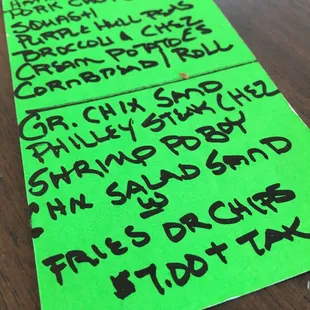 PORK CHOP
SQUASH
PURPLE HULL PEAS
BROCCOLI & CHEZ
CREAM POTATOES
CORNBREAD / ROLL
GR. CHIX SAND
PHILLEY STEAK CHEZ
SHRIMP PO BOY
SALAD SAND
W/
FRIES OR CHIPS
$7.00 + TAX